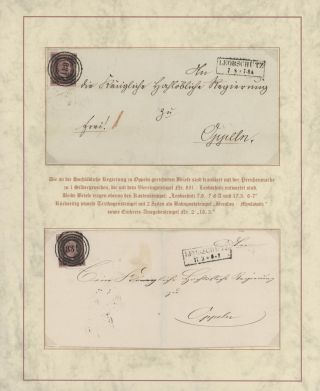 An
LEOBSCHÜTZ
7 8 7 8A
die Königliche Hochlöbliche Regierung
zu
frei.
Oppeln.
Die an die Hochlöbliche Regierung in Oppeln gerichteten Briefe sind frankiert mit der Preußenmarke
zu 1 Silbergroschen, die mit dem Vierringstempel Nr. 831 Leobschütz entwertet sind.
Beide Briefe tragen ebenso den Kastenstempel: "Leobschütz 7.8. 7-8 A und 17.3. 6-7"
Rückseitig jeweils Zweikreisstempel mit 2 Zeilen als Bahnpoststempel "Breslau Myslowitz"
sowie Einkreis-Ausgabestempel Nr. 2 "18.3."
831
LEOBSCHÜTZ
17 3 6-7
An
Eine Königliche Hochlöbliche Regierung
zu
Oppeln